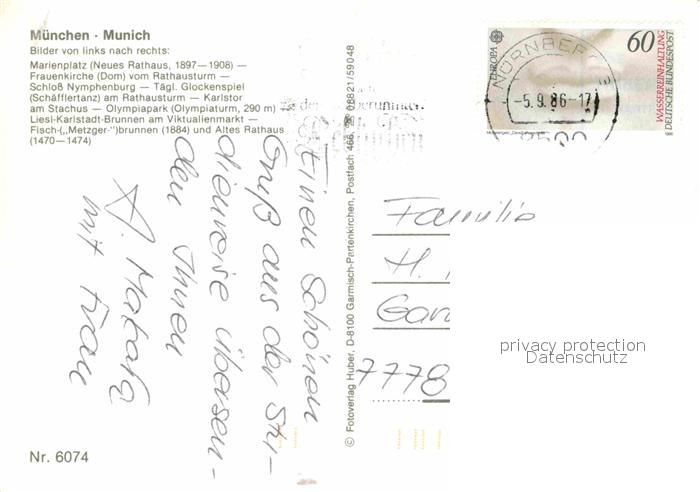 München · Munich
Bilder von links nach rechts:
Marienplatz (Neues Rathaus, 1897—1908) —
Frauenkirche (Dom) vom Rathausturm —
Schloß Nymphenburg — Tägl. Glockenspiel
(Schäfflertanz) am Rathausturm — Karlstor
am Stachus — Olympiapark (Olympiaturm, 290 m) —
Liesl-Karlstadt-Brunnen am Viktualienmarkt —
Fisch-(„Metzger-")brunnen (1884) und Altes Rathaus
(1470—1474)
Einen Schönen
Gruß aus der Stu-
dienreise übersen-
den Ihnen
mit Frau
Nr. 6074
© Fotoverlag Huber, D-8100 Garmisch-Partenkirchen, Postfach 466, ☎ 08821/59048
EUROPA
60
WASSERREINHALTUNG
DEUTSCHE BUNDESPOST
NÜRNBERG
-5.9.86-17
8500
Familie
H.
7778
privacy protection
Datenschutz